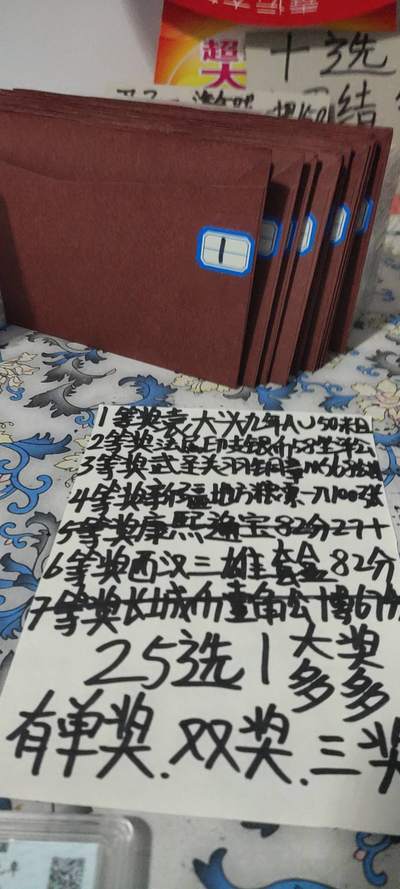 超
大
十选
结
1
1等奖袁大头九年AU50
2等奖法属印支银币
3等奖武圣关羽
4等奖新疆地方粮票一刀100张
5等奖康熙通宝82分27十
6等奖西汉三雄套盒82分
7等奖长城币壹角公博67分
25选1大奖
多多
有单奖.双奖.三奖